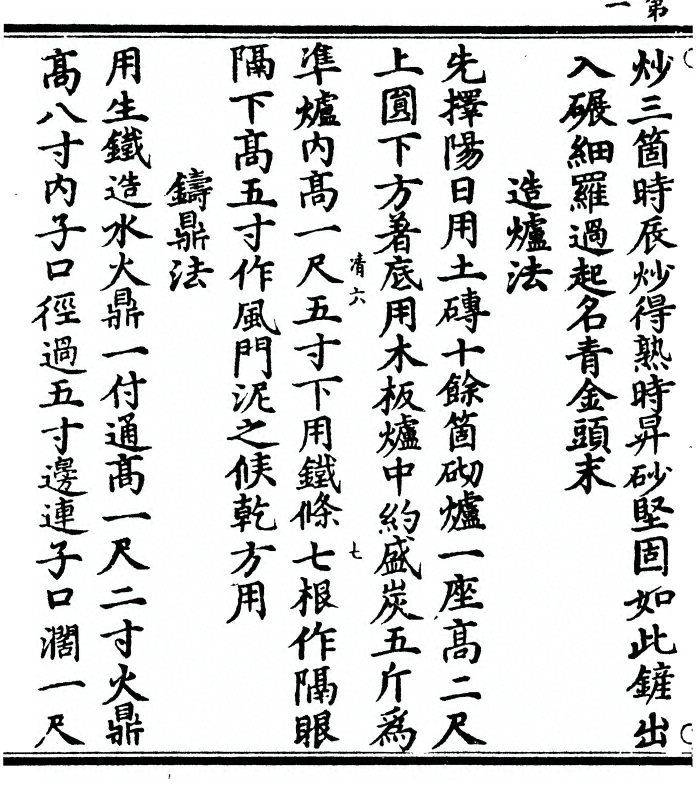 第一
炒三箇時辰炒得熟時昇砂堅固如此鏟出
入碾細羅過起名青金頭末
造爐法
先擇陽日用土磚十餘箇砌爐一座高二尺
上圓下方著底用木板爐中約盛炭五斤爲
清六
七
準爐內高一尺五寸下用鐵條七根作隔眼
隔下高五寸作風門泥之候乾方用
鑄鼎法
用生鐵造水火鼎一付通高一尺二寸火鼎
高八寸內子口徑過五寸邊連子口濶一尺